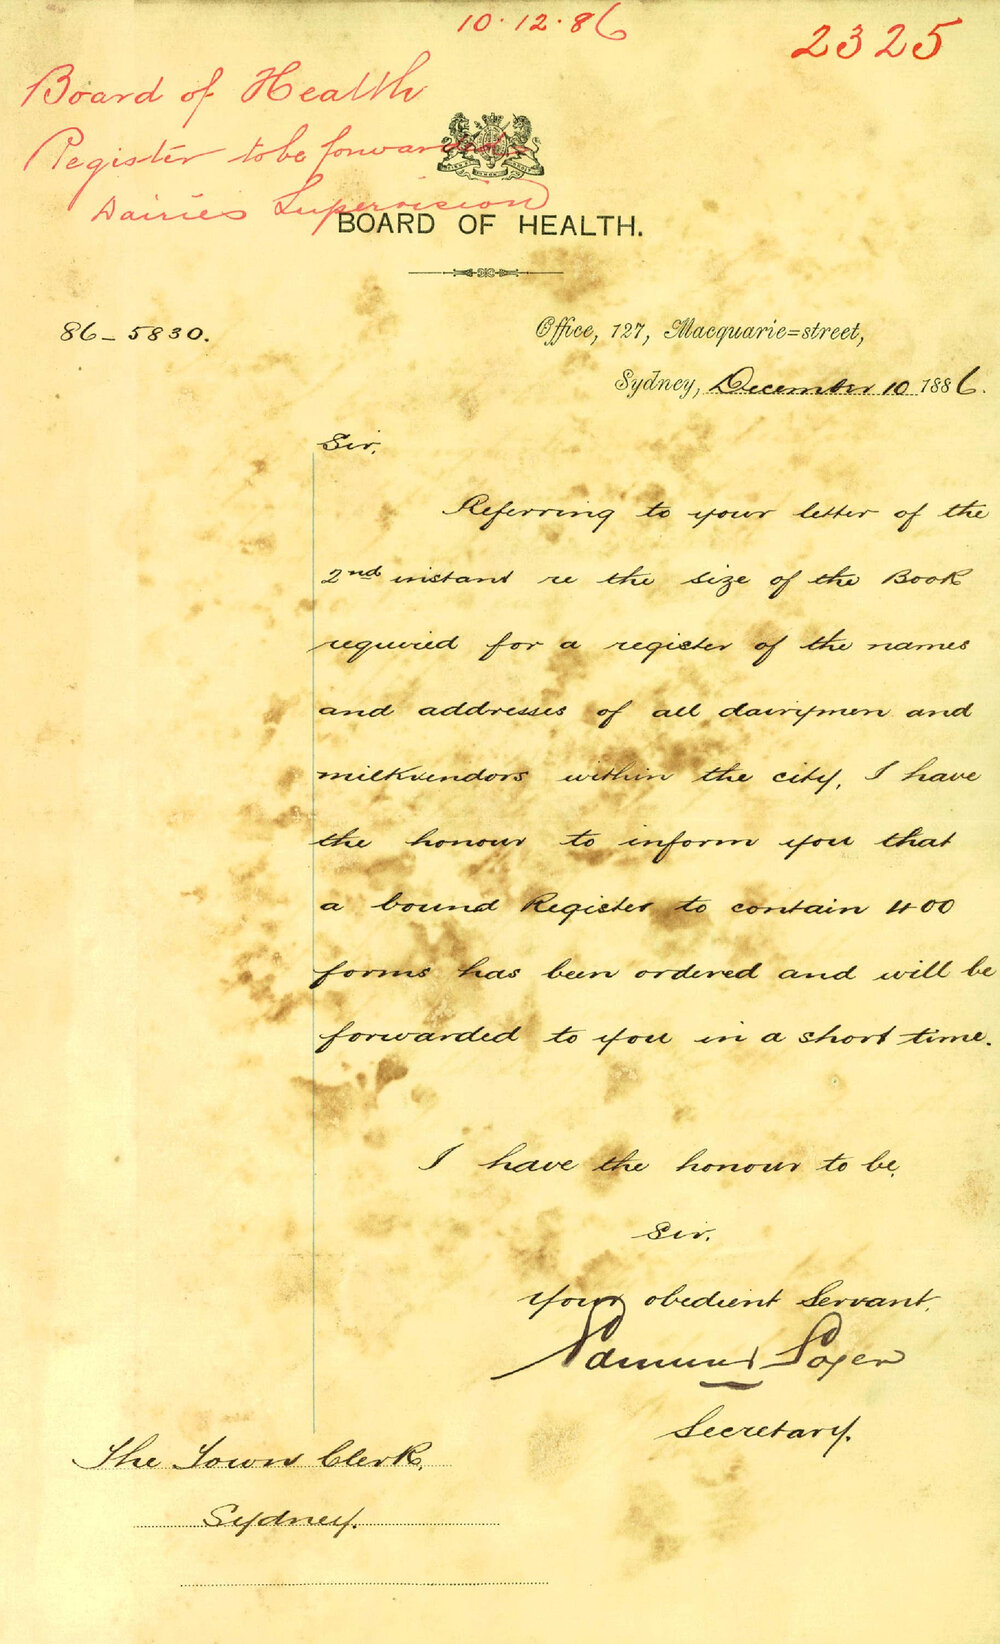 10.12.86
2325
Board of Health
Register to be forwarded
Dairies Supervision
BOARD OF HEALTH.
86-5830.
Office, 127, Macquarie=street,
Sydney, December 10 1886.
Sir,
Referring to your letter of the
2nd instant re the size of the Book
required for a register of the names
and addresses of all dairymen and
milkvendors within the city, I have
the honour to inform you that
a bound Register to contain 400
forms has been ordered and will be
forwarded to you in a short time.
I have the honour to be,
Sir,
Your obedient Servant,
Edmund Sager
Secretary.
The Town Clerk,
Sydney.